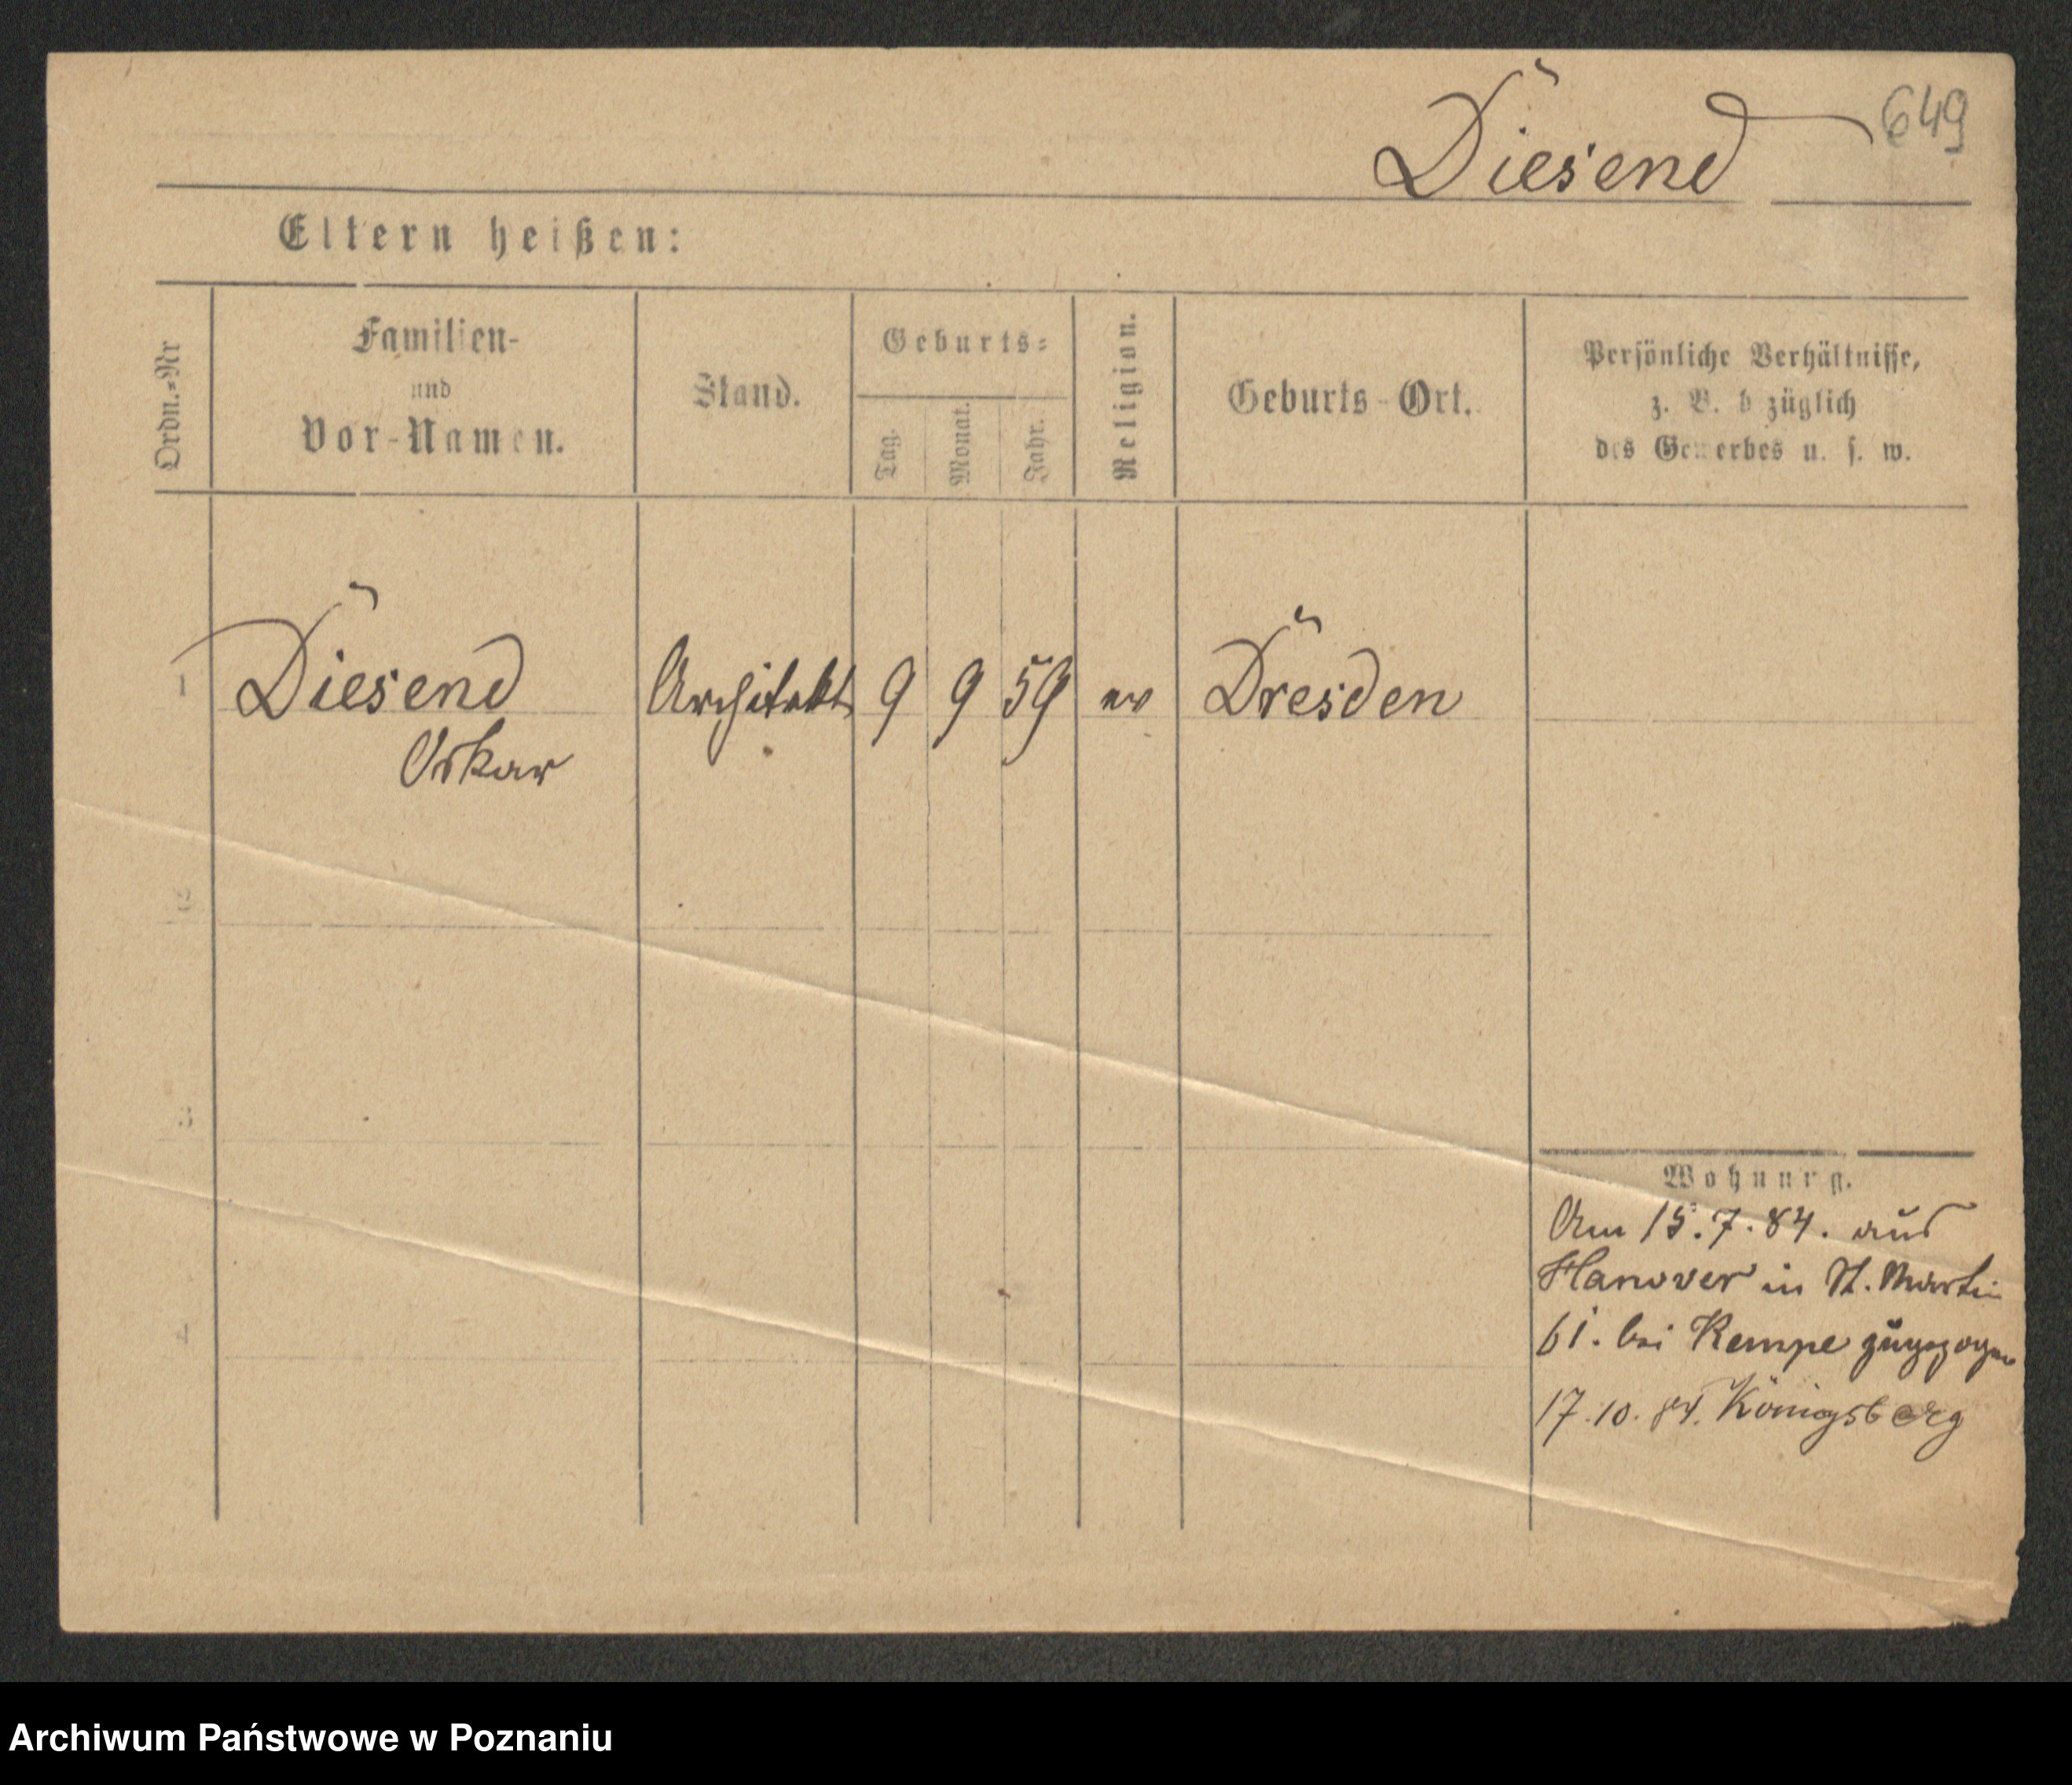 Diesend
649
Eltern heißen:
Ordn.=Nr
Familien-
und
Vor-Namen.
Stand.
Geburts=
Tag.
Monat.
Jahr.
Religion.
Geburts-Ort.
Persönliche Verhältnisse,
z. B. b züglich
des Gewerbes u. s. w.
1 Diesend Architekt 9 9 59 ev Dresden
Oskar
2
3
4
Wohnung.
Am 15.7.84. aus
Hanover in St. Martin
61. bei Kempe zugezogen
17.10.84. Königsberg
Archiwum Państwowe w Poznaniu